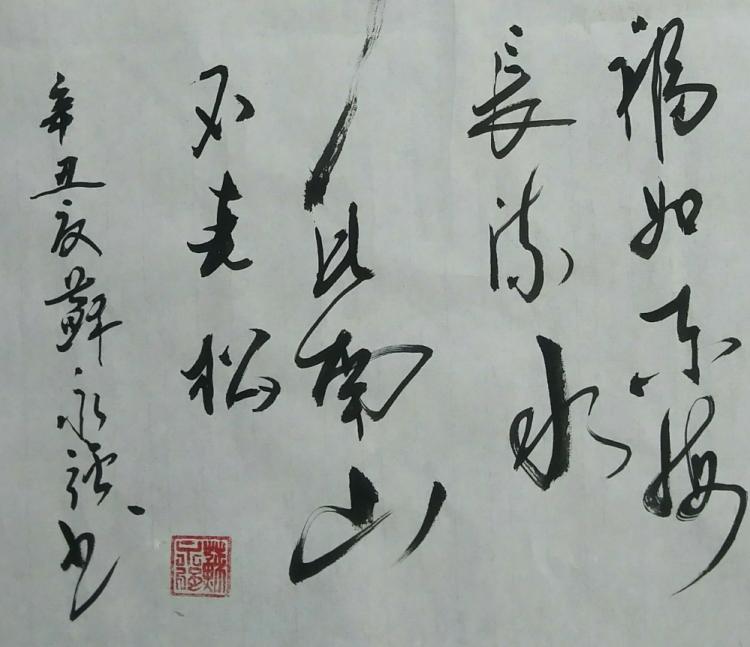 福如东海
長流水
寿比南山
不老松
辛丑夜蘇永强书